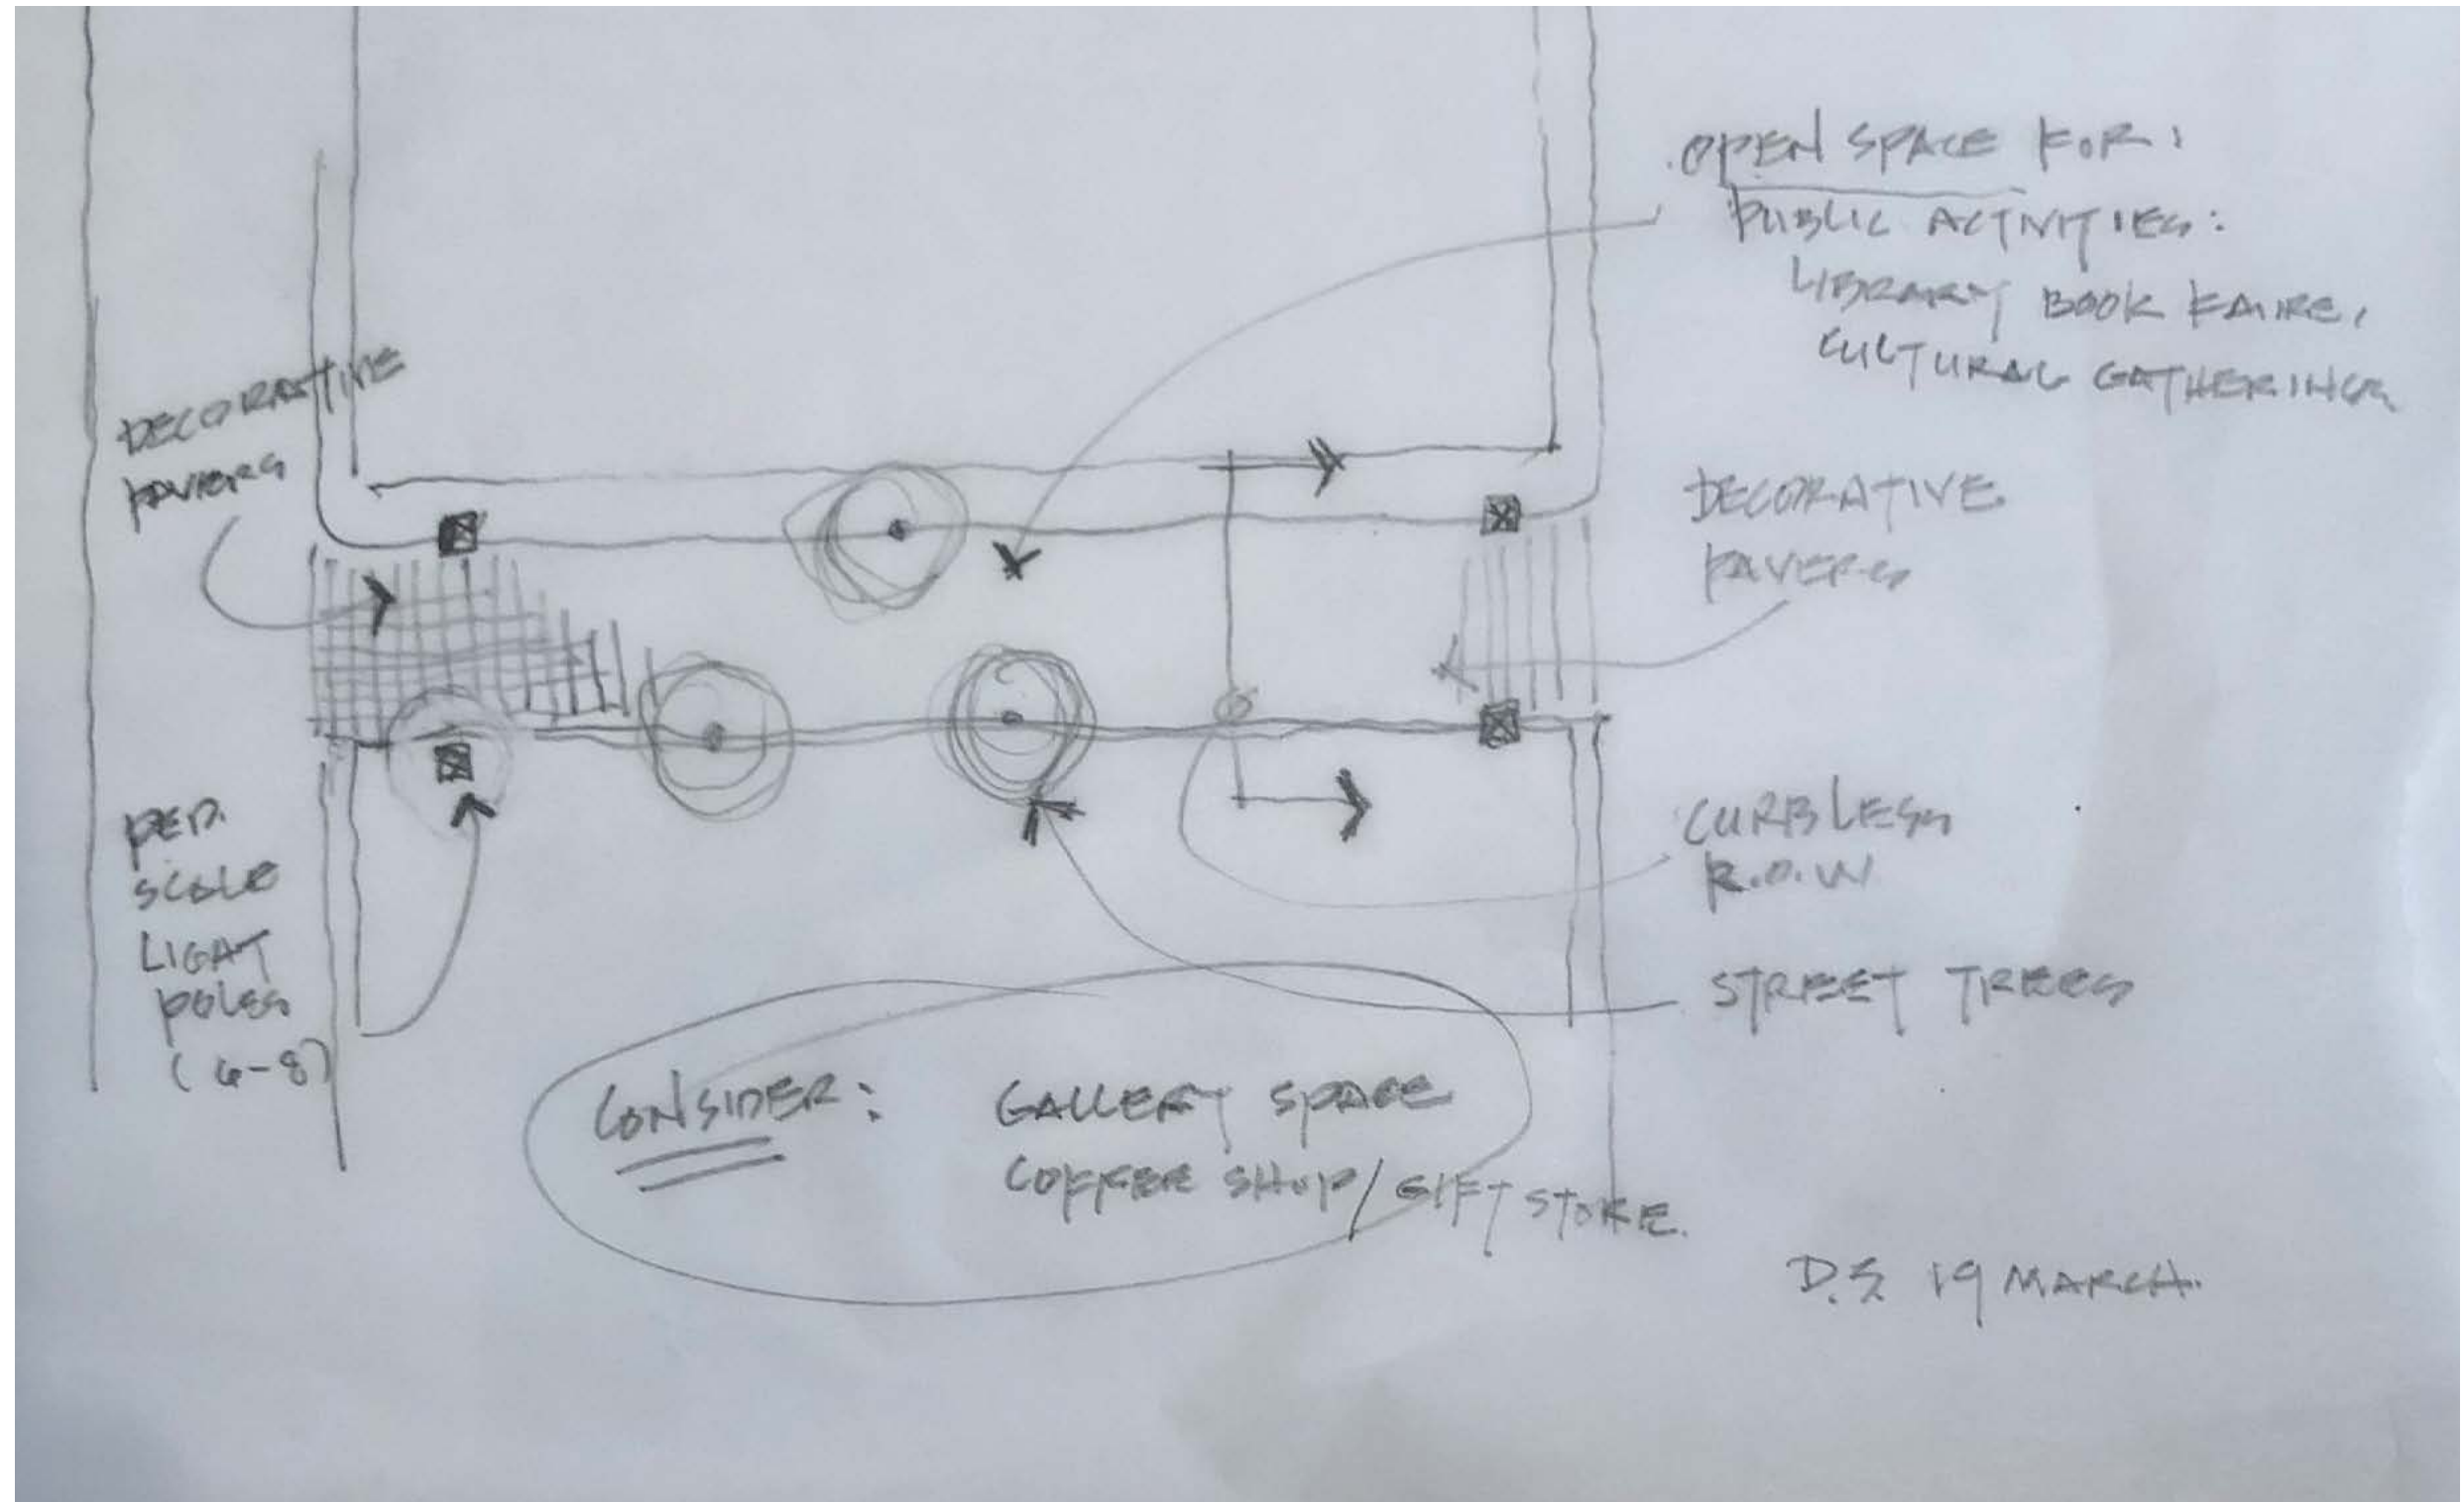 OPEN SPACE FOR:
PUBLIC ACTIVITIES:
LIBRARY BOOK FAIRE,
CULTURAL GATHERINGS
DECORATIVE
PAVERS
DECORATIVE
PAVERS
PED.
SCALE
LIGHT
POLES
(6-8)
CURBLESS
R.O.W
STREET TREES
CONSIDER: GALLERY SPACE
COFFEE SHOP/GIFT STORE.
D.S. 19 MARCH.